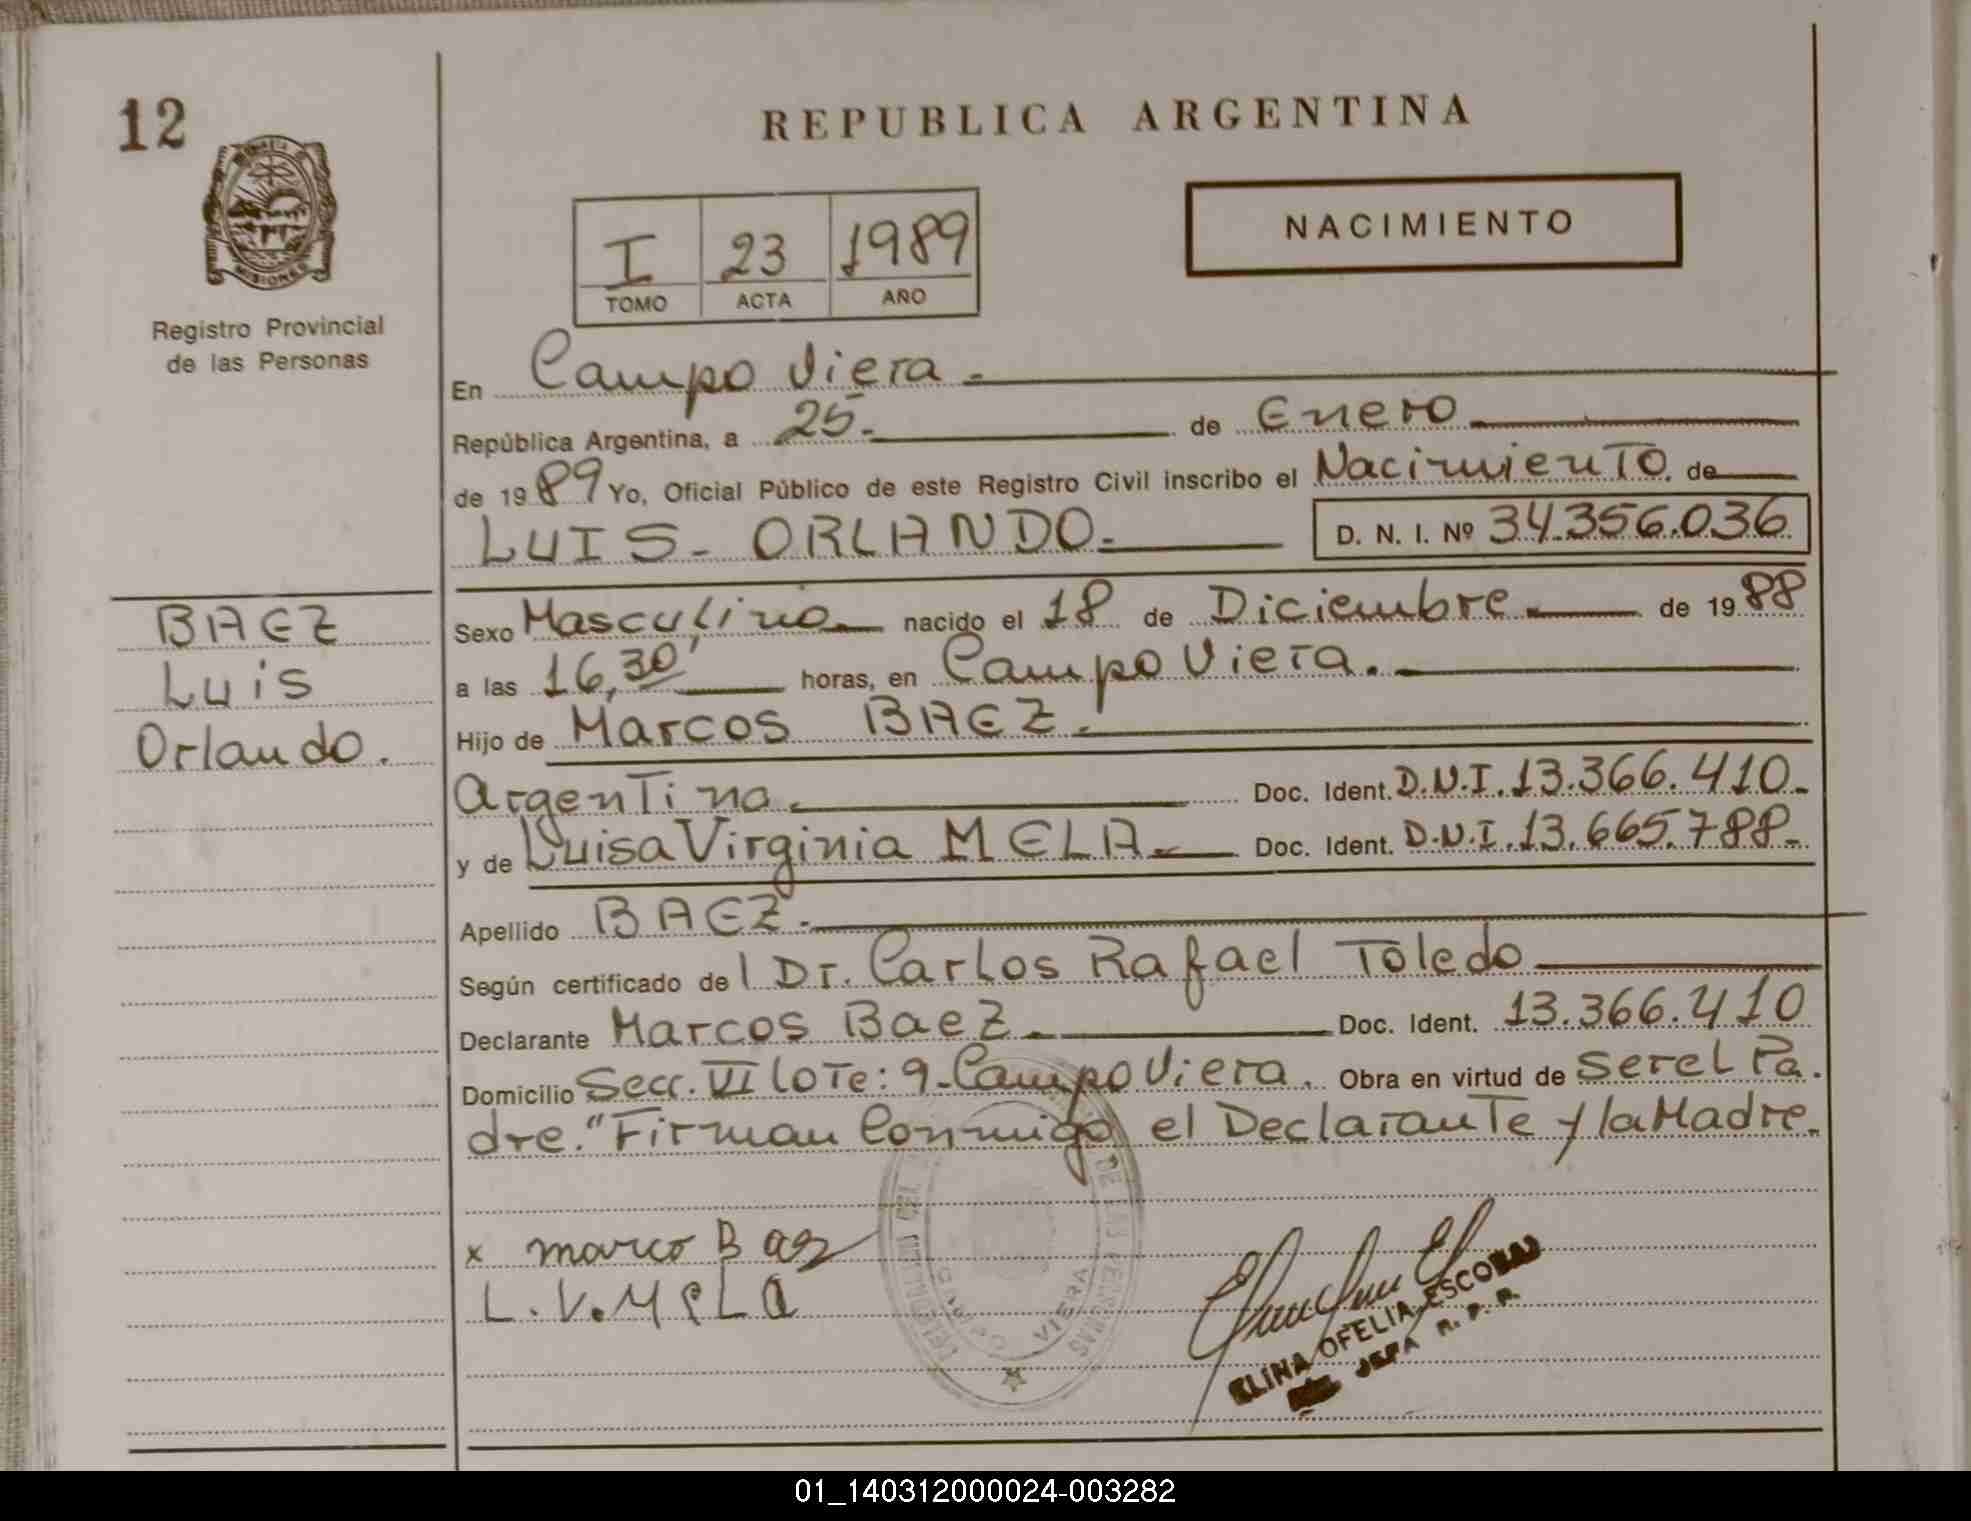 12
REPUBLICA ARGENTINA
MISIONES
Registro Provincial
de las Personas
NACIMIENTO
I 23 1989
TOMO ACTA AÑO
En Campo Viera.
República Argentina, a 25. de Enero
de 1989 Yo, Oficial Público de este Registro Civil inscribo el Nacimiento. de
LUIS - ORLANDO. D. N. I. Nº 34.356.036
BAEZ
Luis
Orlando.
Sexo Masculino nacido el 18 de Diciembre. de 1988
a las 16,30' horas, en Campo Viera.
Hijo de Marcos BAEZ.
Argentino. Doc. Ident. D.N.I. 13.366.410.
y de Luisa Virginia MELA. Doc. Ident. D.N.I. 13.665.788.
Apellido BAEZ.
Según certificado de l Dr. Carlos Rafael Toledo
Declarante Marcos Baez. Doc. Ident. 13.366.410
Domicilio Secc. VI lote: 9-Campo Viera. Obra en virtud de ser el Pa.
dre. "Firman Conmigo el Declarante y la Madre.
x marco Baz
L.V.MeLa
VIERA
DE LAS PERSONAS
ELINA OFELIA ESCOBAR
JEFA R. P. P.
01_140312000024-003282